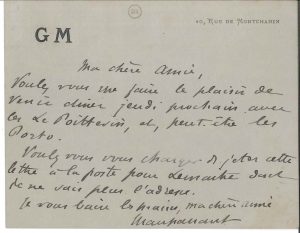 GM
10, RUE DE MONTCHANIN
Ma chère amie,
Voulez vous me faire le plaisir de
venir diner jeudi prochain avec
les Le Poittevin, et, peut-être les
Porto.
Voulez vous vous charger de jeter cette
lettre à la poste pour demarche dont
je ne sais plus l'adresse.
Je vous baise les mains, ma chère amie
Maupassant